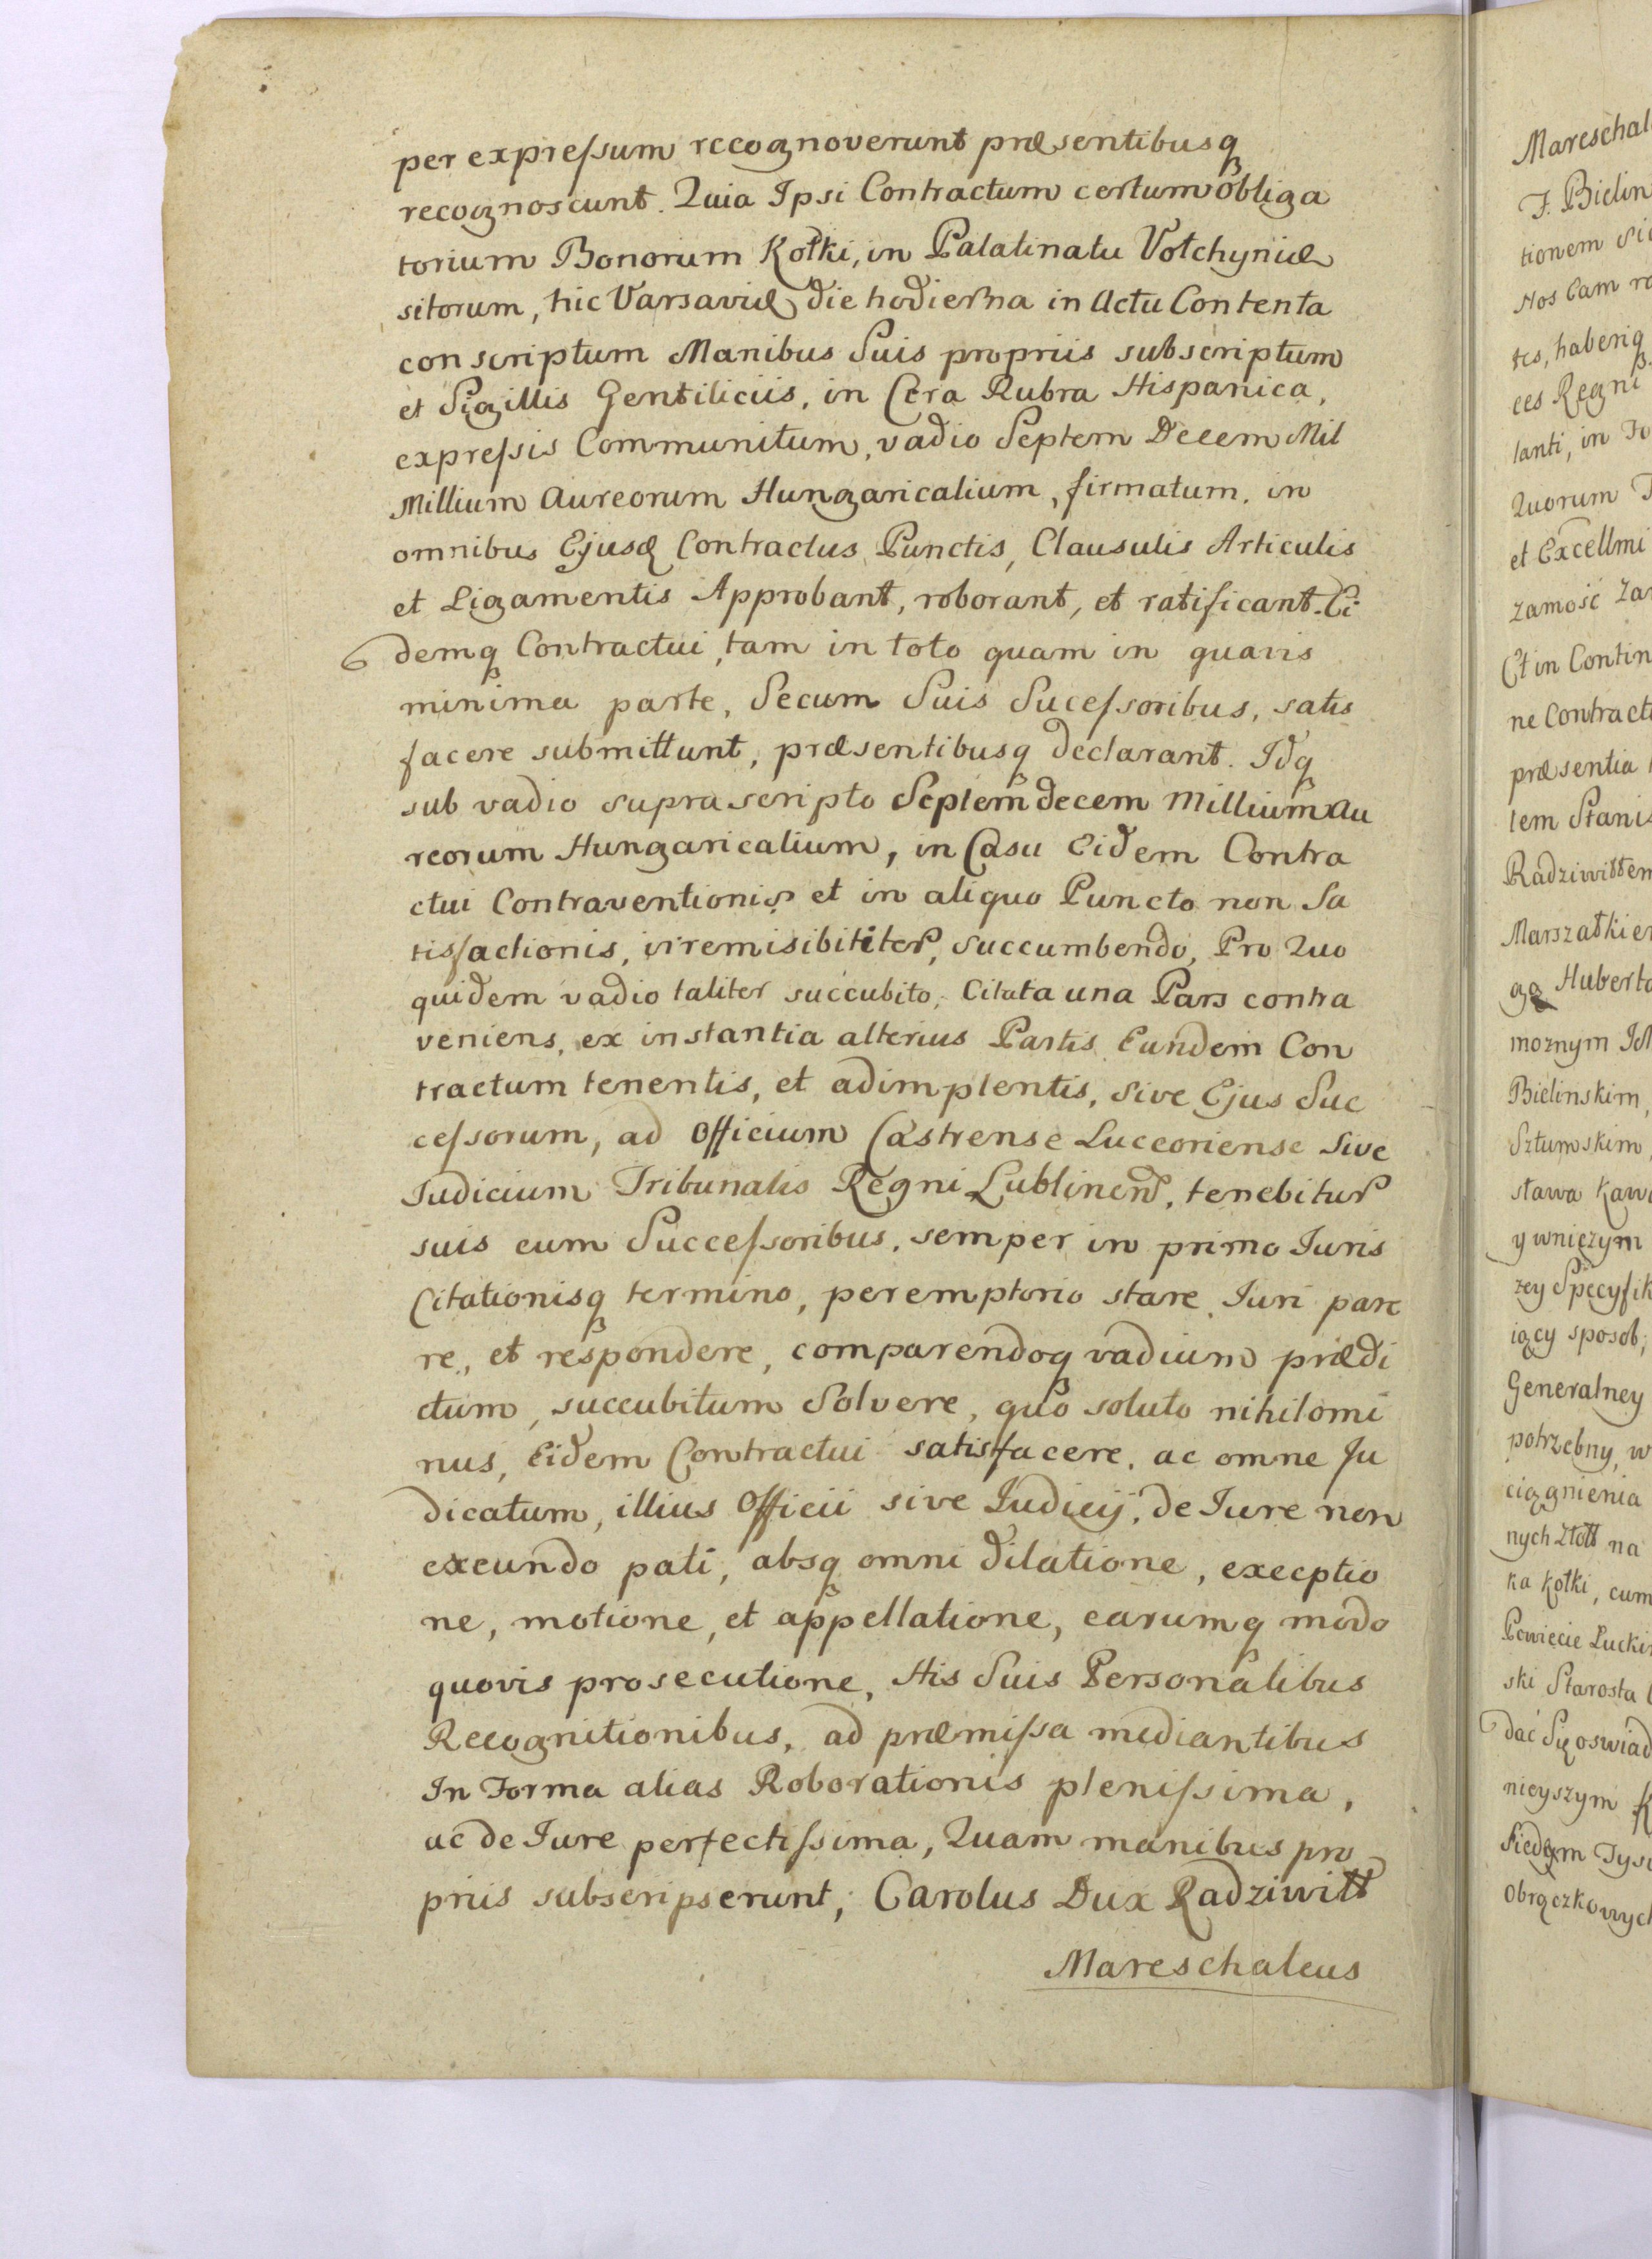 per expreſsum recognoverunt præsentibusq
recognoscunt. Quia Ipsi Contractum certum obliga
torium Bonorum Kołki, in Palatinatu Vołchyniæ
sitorum, hic Varsaviæ die hodierna in Actu Contenta
conscriptum Manibus Suis propriis subscriptum
et Sigillis Gentiliciis, in Cera Rubra Hispanica,
expreſsis Communitum, vadio Septem Decem Mil
Millium Aureorum Hungaricalium, firmatum. in
omnibus Ejusd Contractus Punctis, Clausulis Articulis
et Ligamentis Approbant, roborant, et ratificant. Ei
demq Contractui, tam in toto quam in quavis
minima parte, Secum Suis Suceſsoribus, satis
facere submittunt, præsentibusq declarant. Idq
sub vadio suprascripto Septem decem Millium Au
reorum Hungaricalium, in Casu Eidem Contra
ctui Contraventionis et in aliquo Puncto non Sa
tisfactionis, irremisibiliter, succumbendo, Pro Quo
quidem vadio taliter succubito, Citata una Pars contra
veniens, ex instantia alterius Partis Eundem Con
tractum tenentis, et adimplentis, Sive Ejus Suc
ceſsorum, ad Officium Castrense Luceoriense Sive
Judicium Tribunalis Regni Lublinen, tenebitur
suis cum Succeſsoribus, semper in primo Juris
Citationisq termino, peremptorio stare Juri pare
re, et respondere, comparendoq vadium prædi
ctum, succubitum Solvere, quo soluto nihilomi
nus, Eidem Contractui satisfacere, ac omne Ju
dicatum, illius Officii sive Judicij, de Jure non
exeundo pati, absq omni dilatione, exceptio
ne, motione, et appellatione, earumq modo
quovis prosecutione, His Suis Personalibus
Recognitionibus, ad præmiſsa mediantibus
In Forma alias Roborationis pleniſsima,
ac de Jure perfectiſsima, Quam manibus pro
priis subscripserunt; Carolus Dux Radziwiłł
Mareschaleus
Mareschal
F. Bielin
tionem
Nos Cam
tes, haberiq
ces Regni
lanti, in
Quorum
et Excellmi
zamość
Et in Contin
ne Contract
præsentia
lem Stanis
Radziwiłłem
Marszałkie
Huberto
moznym
Bielinskim,
Sztumskim
stawa
y wnięzym
zey Specyfik
iący sposob;
Generalney
potrzebny, w
ciągnienia
nych Złott na
ka Kołki, cum
Powiecie Łucki
ski Starosta
dać Się oswiad
nieyszym
Siedem Tysi
Obrączkowych